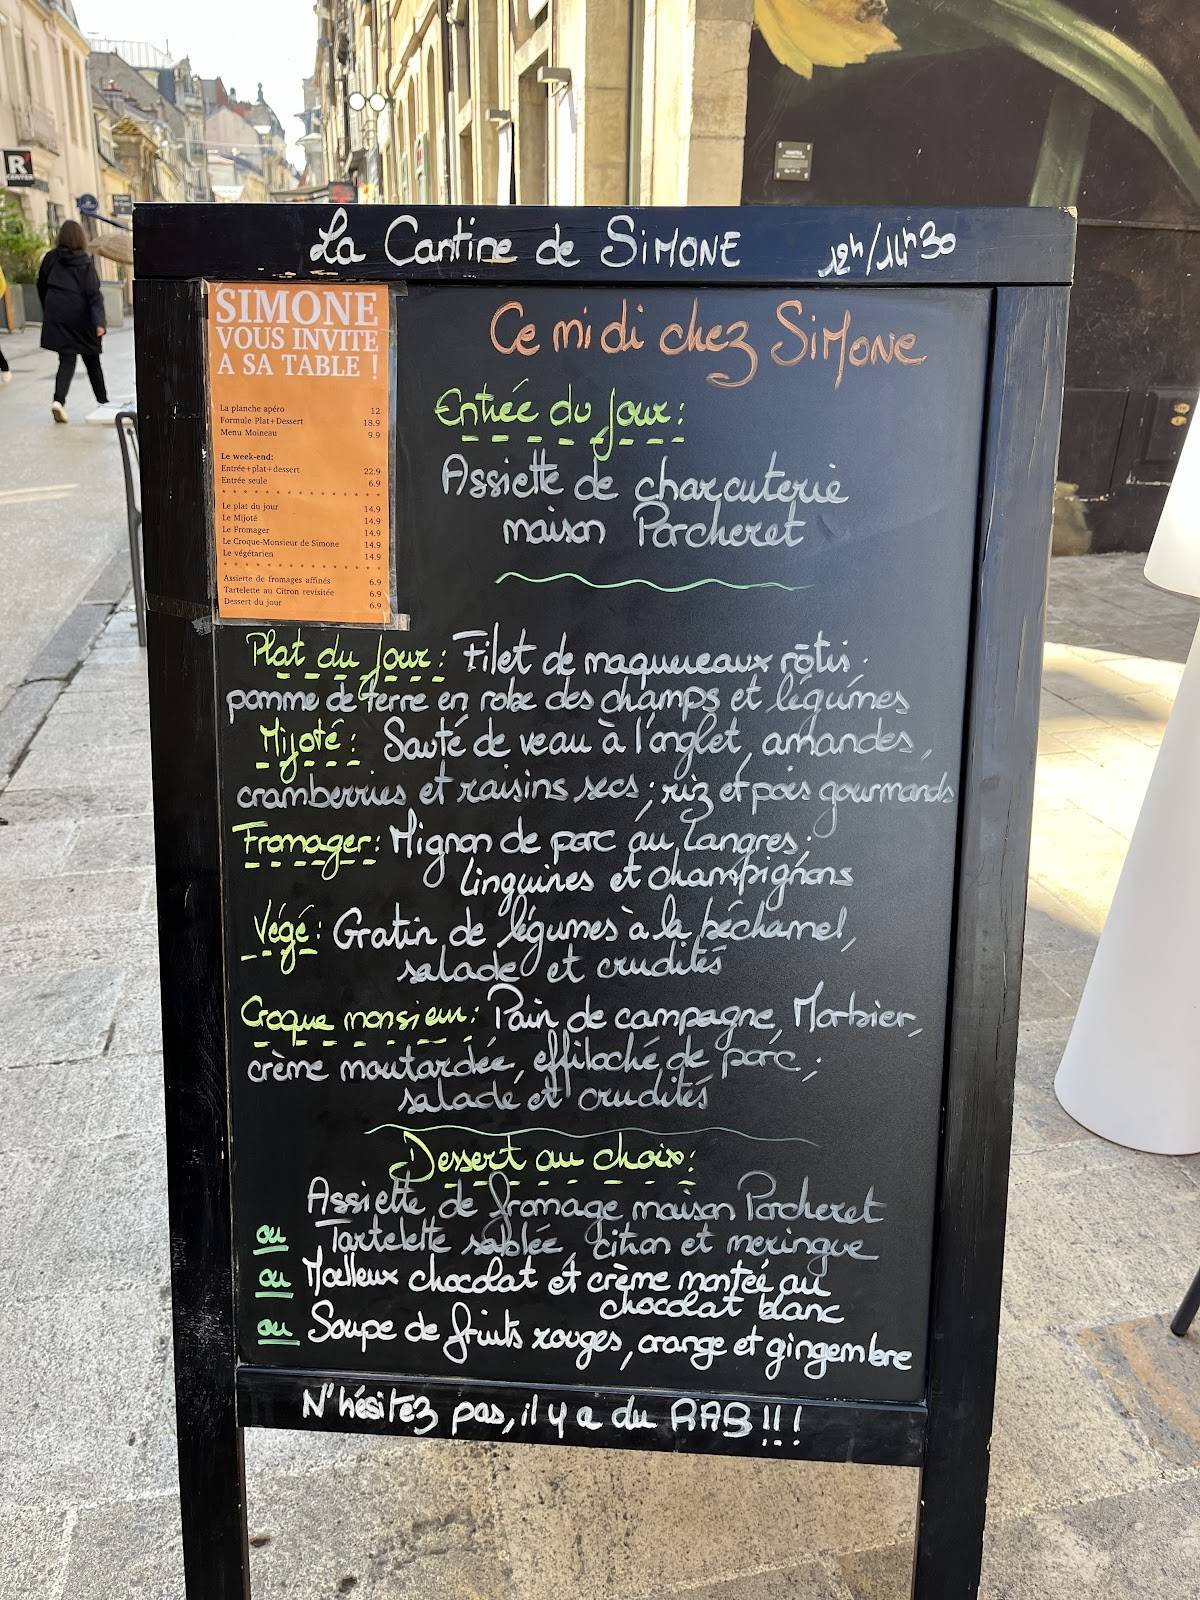 R
La Cantine de SIMONE 12h/14h30
SIMONE
VOUS INVITE
A SA TABLE !
La planche apéro 12
Formule Plat+Dessert 18.9
Menu Moineau 9.9
Le week-end:
Entrée+plat+dessert 22.9
Entrée seule 6.9
Le plat du jour 14.9
Le Mijoté 14.9
Le Fromager 14.9
Le Croque-Monsieur de Simone 14.9
Le végétarien 14.9
Assiette de fromages affinés 6.9
Tartelette au Citron revisitée 6.9
Dessert du jour 6.9
Ce midi chez SIMONE
Entrée du Jour :
Assiette de charcuterie
maison Porcheret
Plat du Jour : Filet de maquereaux rôtis ;
pomme de terre en robe des champs et légumes
Mijoté : Sauté de veau à l'onglet, amandes,
cramberries et raisins secs ; riz et pois gourmands
Fromager : Mignon de porc au Langres ;
Linguines et champignons
Végé : Gratin de légumes à la béchamel,
salade et crudités
Croque monsieur : Pain de campagne, Morbier,
crème moutardée, effiloché de porc ;
salade et crudités
Dessert au choix :
Assiette de fromage maison Porcheret
ou Tartelette sablée, citron et meringue
ou Moelleux chocolat et crème montée au
chocolat blanc
ou Soupe de fruits rouges, orange et gingembre
N'hésitez pas, il y a du RAB !!!